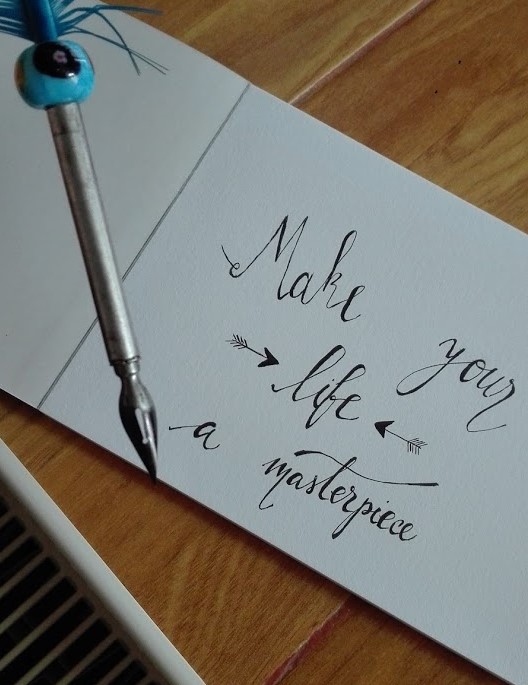 Make your
life
a masterpiece